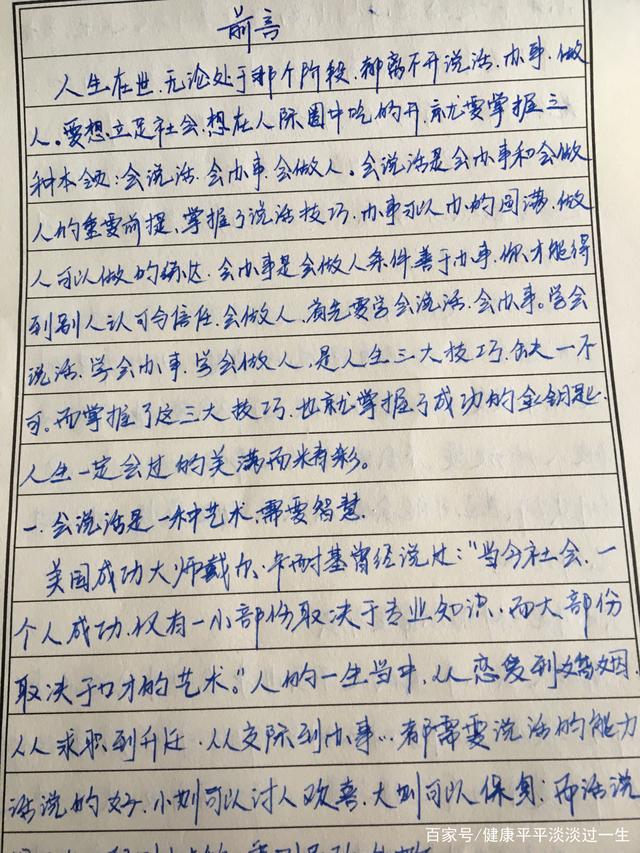 前言
人生在世、无论处于那个阶段、都离不开说话、办事、做
人。要想立足社会、想在人际圈中吃的开、就要掌握三
种本领：会说话、会办事、会做人。会说话是会办事和会做
人的重要前提、掌握了说话技巧、办事可以办的圆满、做
人可以做的练达、会办事是会做人条件善于办事、你才能得
到别人认可与信任、会做人、首先要学会说话、会办事。学会
说话、学会办事、学会做人、是人生三大技巧、缺一不
可。而掌握了这三大技巧、也就掌握了成功的金钥匙、
人生一定会过的美满而精彩。
一、会说话是一种艺术、需要智慧
美国成功大师戴尔、卡耐基曾经说过："当今社会、一
个人成功、仅有一小部份取决于专业知识、而大部份
取决于口才的艺术。"人的一生当中、从恋爱到婚姻、
从求职到升迁、从交际到办事…都需要说话的能力
话说的好、小则可以讨人欢喜、大则可以保身；而话说
百家号/健康平平淡淡过一生